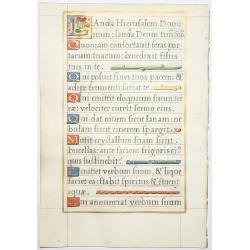 Lauda Hierusalem Domi
num: lauda Deum tuū siō
Quoniam confortauit seras por
tarum tuarum: benedixit filiis
tuis in te.
Qui posuit fines tuos pacem: &
adipe frumenti satiat te.
Qui emittit eloquium suum ter
ræ: velociter currit sermo eius.
Qui dat niuem sicut lanam: ne
bulam sicut cinerem spargit.
Mittit crystallum suam sicut
buccellas: ante faciem frigoris ei'
quis sustinebit?
Emittet verbum suum, & lique
faciet ea: flabit spiritus & fluent
aquæ.
Qui annunciat verbum suum